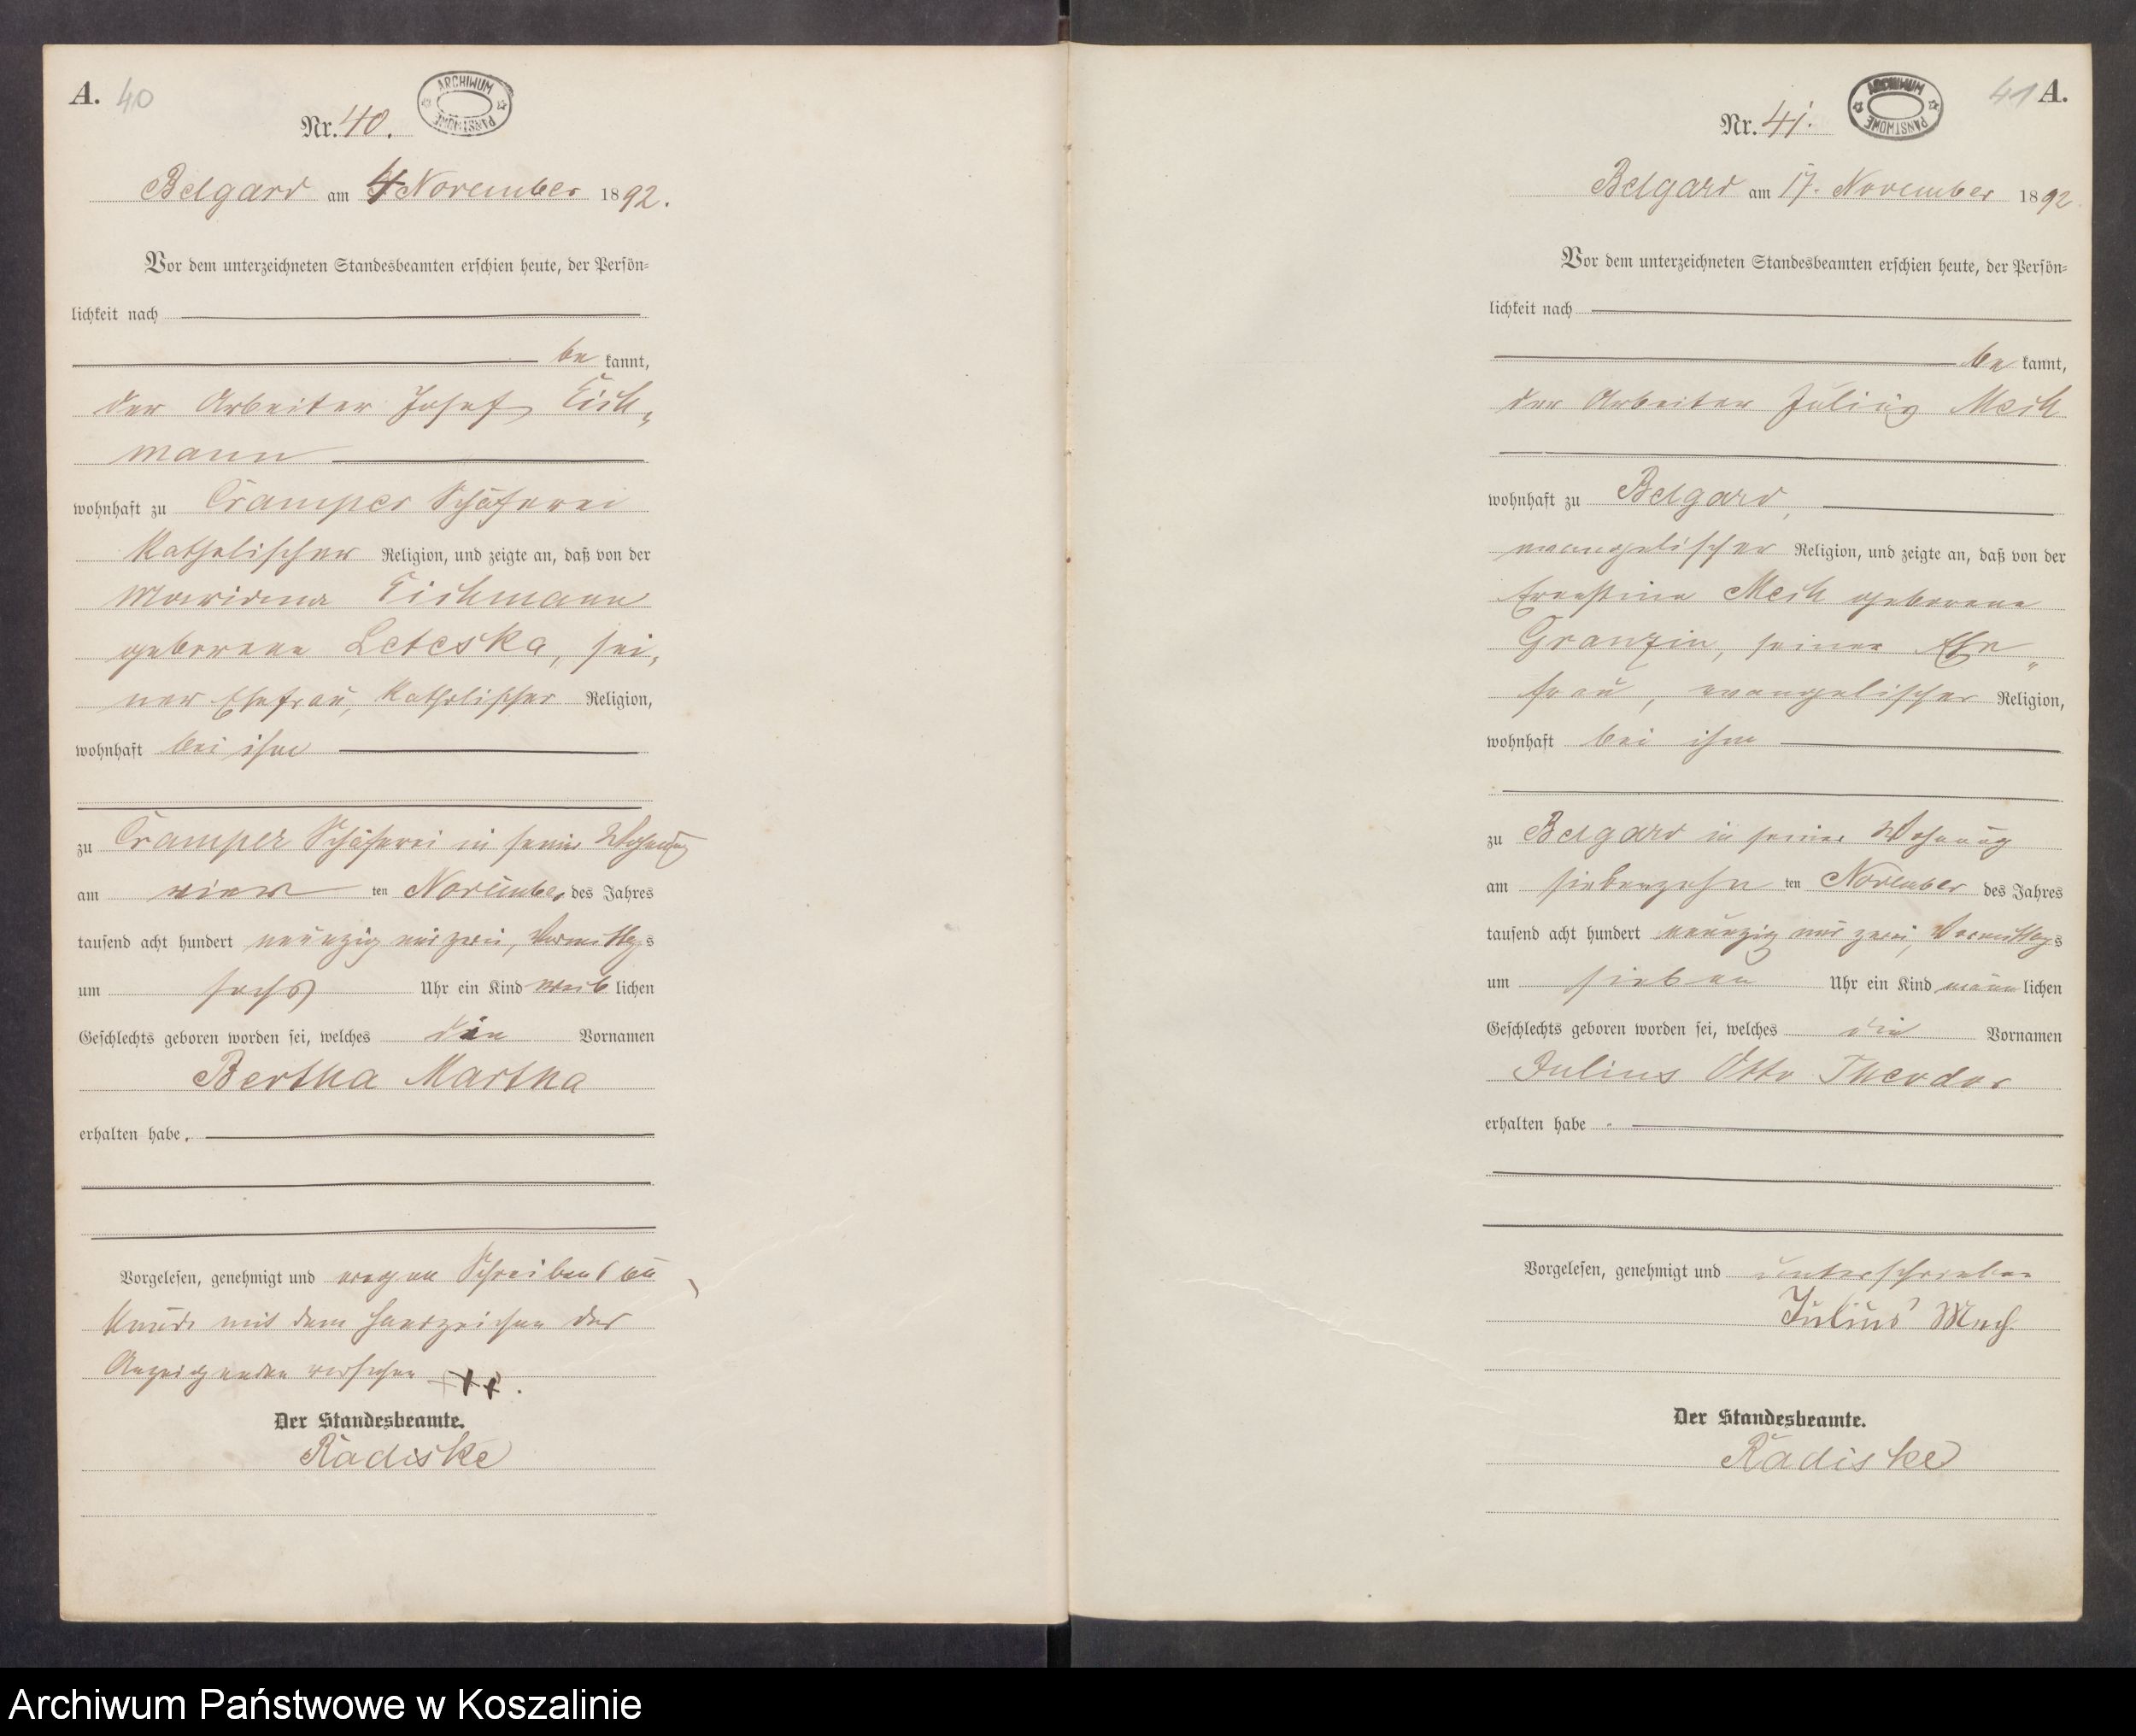 A. 40
ARCHIWUM PAŃSTWOWE
Nr. 40.
Belgard am 4 November 1892.
Vor dem unterzeichneten Standesbeamten erschien heute, der Persön-
lichkeit nach
be kannt,
der Arbeiter Josef Eich-
mann
wohnhaft zu Cramper Schäferei
katholischer Religion, und zeigte an, daß von der
Marianna Eichmann
geborene Leteska, sei-
ner Ehefrau, katholischer Religion,
wohnhaft bei ihm
zu Cramper Schäferei in seiner Wohnung
am vier ten November des Jahres
tausend acht hundert neunzig und zwei, Vormittags
um sechs Uhr ein Kind weib lichen
Geschlechts geboren worden sei, welches die Vornamen
Bertha Martha
erhalten habe.
Vorgelesen, genehmigt und wegen Schreibensun
kunde mit dem Handzeichen des
Anzeigenden versehen +++.
Der Standesbeamte.
Radiske
41 A.
ARCHIWUM PAŃSTWOWE
Nr. 41.
Belgard am 17. November 1892
Vor dem unterzeichneten Standesbeamten erschien heute, der Persön-
lichkeit nach
be kannt,
der Arbeiter Julius Mech
wohnhaft zu Belgard,
evangelischer Religion, und zeigte an, daß von der
Ernestine Mech geborene
Granzin, seiner Ehe-
frau, evangelischer Religion,
wohnhaft bei ihm
zu Belgard in seiner Wohnung
am siebenzehn ten November des Jahres
tausend acht hundert neunzig und zwei, Vormittags
um sieben Uhr ein Kind männ lichen
Geschlechts geboren worden sei, welches die Vornamen
Julius Otto Theodor
erhalten habe.
Vorgelesen, genehmigt und unterschrieben
Julius Mech
Der Standesbeamte.
Radiske
Archiwum Państwowe w Koszalinie